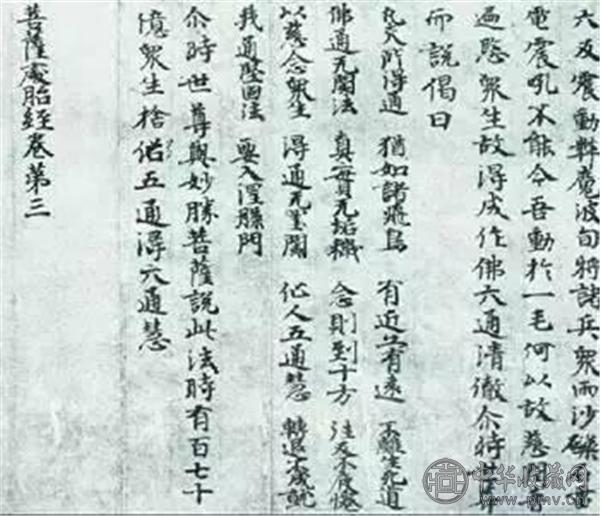 六反震動弊魔波旬將諸兵衆雨沙礫
電震吼不能令吾動於一毛何以故慈
過愍衆生故得成作佛六通清徹尒時世尊
而說偈曰
凡夫所得通 猶如諸飛鳥 有近亦有遠 不離生死道
佛通无閡法 真實无垢穢 念則到十方 往反不疲惓
以慈念衆生 得通无罣閡 仙人五通慧 轉退不成就
我通堅固法 要入涅槃門
尒時世尊與妙勝菩薩說此法時有百七十
億衆生捨俗五通得六通慧
菩薩處胎經卷第三
中华收藏网